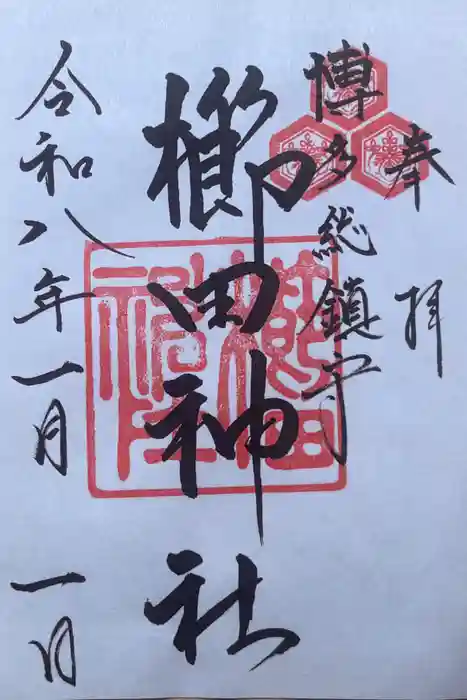 奉拝
博多総鎮守
櫛田神社
令和八年一月一日
櫛田神社